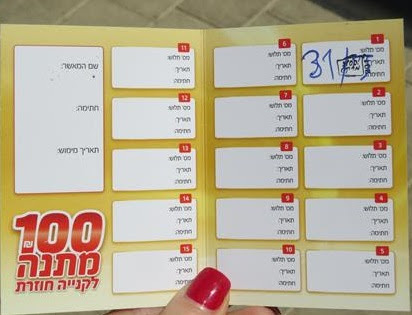 1
מס׳ תלוש:
31
תאריך:
חתימה:
2
מס׳ תלוש:
תאריך:
חתימה:
3
מס׳ תלוש:
תאריך:
חתימה:
4
מס׳ תלוש:
תאריך:
חתימה:
5
מס׳ תלוש:
תאריך:
חתימה:
6
מס׳ תלוש:
תאריך:
חתימה:
7
מס׳ תלוש:
תאריך:
חתימה:
8
מס׳ תלוש:
תאריך:
חתימה:
9
מס׳ תלוש:
תאריך:
חתימה:
10
מס׳ תלוש:
תאריך:
חתימה:
11
מס׳ תלוש:
תאריך:
חתימה:
12
מס׳ תלוש:
תאריך:
חתימה:
13
מס׳ תלוש:
תאריך:
חתימה:
14
מס׳ תלוש:
תאריך:
חתימה:
15
מס׳ תלוש:
תאריך:
חתימה:
שם המאשר:
חתימה:
תאריך מימוש:
100 ₪
מתנה
לקנייה חוזרת